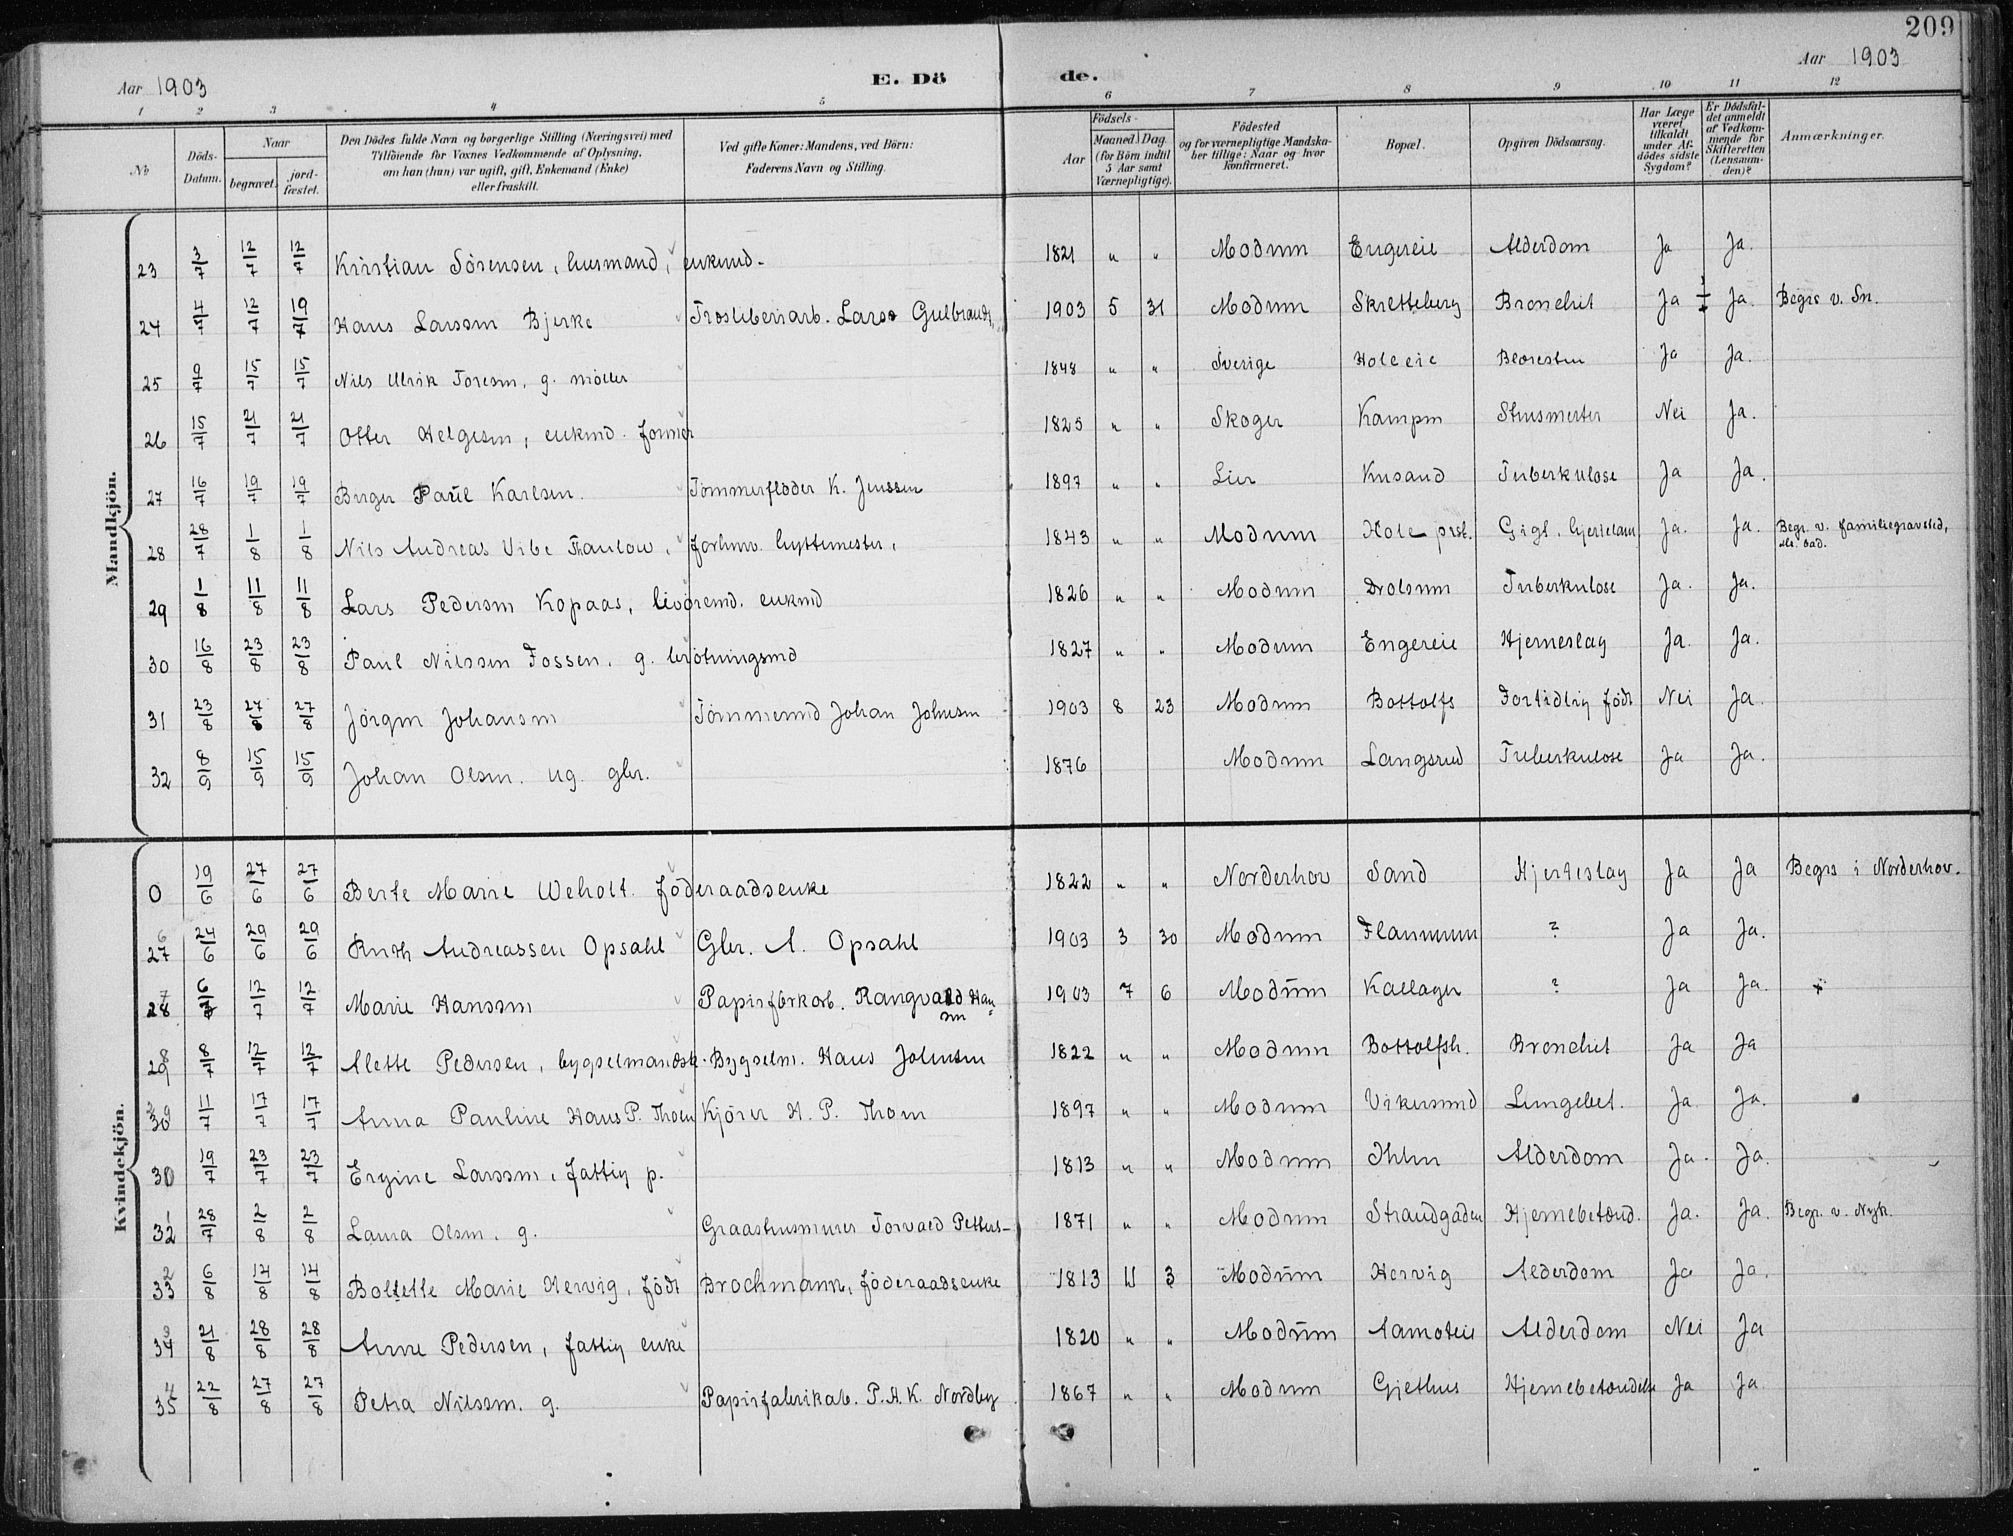 209
Aar 1903 E. Dö de. Aar 1903
1 2 3 4 5 6 7 8 9 10 11 12
No
Döds-Datum.
Naar
begravet.
jord-fæstet.
Den Dödes fulde Navn og borgerlige Stilling (Næringsvei) med
Tilföiende for Voxnes Vedkommende af Oplysning,
om han (hun) var ugift, gift, Enkemand (Enke)
eller fraskilt.
Ved gifte Koner: Mandens, ved Börn:
Faderens Navn og Stilling.
Födsels-
Aar
Maaned. Dag.
(for Börn indtil
5 Aar samt
Værnepligtige).
Födested
og for værnepligtige Mandska-
ber tillige: Naar og hvor
konfirmeret.
Bopæl.
Opgiven Dödsaarsag.
Har Læge
været
tilkaldt
under Af-
dödes sidste
Sygdom?
Er Dödsfal-
det anmeldt
af Vedkom-
mende for
Skifteretten
(Lensman-
den)?
Anmærkninger.
Mandkjön.
23 3/7 12/7 12/7 Kristian Sörensen, husmand, enkmd. 1821 " " Modum Engereie Alderdom Ja Ja.
24 4/7 12/7 19/7 Hans Larssen Bjerke Træsliberiarb. Lars Gulbrands. 1903 5 31 Modum Skretteberg Bronchit Ja Ja. Begr. v. Sn.
25 9/7 15/7 15/7 Nils Ulrik Toresen, g. möller 1848 " " Sverige Hole eie Blæresten Ja Ja.
26 15/7 21/7 21/7 Otter Helgesen, enkmd. former 1825 " " Skoger Kampen Nei Ja.
27 16/7 19/7 19/7 Birger Paul Karlsen. Tömmerfløder K. Jenssen 1897 " " Lier Knsand Tuberkulose Ja Ja.
28 28/7 1/8 1/8 Nils Andreas Vibe Thaulow, forhenv. hyttemester, 1843 " " Modum Hole prst. Gigt, hjertelam Ja. Ja. Begr. v. familiegravsted,
bad.
29 1/8 11/8 11/8 Lars Pedersen Kopaas, livöremd. enkmd 1826 " " Modum Drolsum Tuberkulose Ja. Ja.
30 16/8 23/8 23/8 Paul Nilssen Fossen, g. brötningsmd 1827 " " Modum Engereie Hjerneslag Ja. Ja.
31 23/8 27/8 27/8 Jörgen Johansen Tömmermd Johan Johnsen 1903 8 23 Modum Bottolfs Fortidlig födt Nei Ja.
32 8/9 15/9 15/9 Johan Olsen. ug. gbr. 1876 Modum Langsrud Tuberkulose Ja Ja.
Kvindekjön.
0 19/6 27/6 27/6 Berte Marie Weholt. föderaadsenke 1822 " " Norderhov Sand Hjerteslag Ja Ja Begrs i Norderhov.
27 6 24/6 29/6 29/6 Ruth Andreassen Opsahl Gbr. A. Opsahl 1903 3 30 Modum Flannum ? Ja Ja.
28 7 6/7 12/7 12/7 Marie Hanssen Papirfbrkarb. Rangvald Han
sen 1903 7 6 Modum Kallager ? Ja Ja.
29 8 8/7 12/7 12/7 Alette Pedersen, bygselmandsk. Bygselm. Hans Johnsen 1822 " " Modum Bottolfsh. Bronchit Ja Ja
30 9 11/7 17/7 17/7 Anna Pauline Hans P. Thoen Kjörer H. P. Thoen 1897 " " Modum Vikersund Lungebet. Ja Ja.
30 19/7 23/7 23/7 Ergine Larssen, fattig p. 1813 " " Modum Ihlen Alderdom Ja. Ja.
32 1 28/7 2/8 2/8 Laura Olsen. g. Graastensmurer Torvald Petters- 1871 " " Modum Strandgaden Hjernebetænd. Ja. Ja. Begr. v. Nyk.
33 2 6/8 14/8 14/8 Boltette Marie Hervig, födt Brochmann, föderaadsenke 1813 11 3 Modum Hervig Alderdom Ja Ja.
34 3 21/8 28/8 28/8 Anne Pedersen, fattig enke 1820 " " Modum Aamoteie Alderdom Nei Ja
35 4 22/8 27/8 27/8 Petra Nilssen. g. Papirfabrikab. P.A.K. Nordby 1867 " " Modum Gjethus Hjernebetændelse Ja Ja